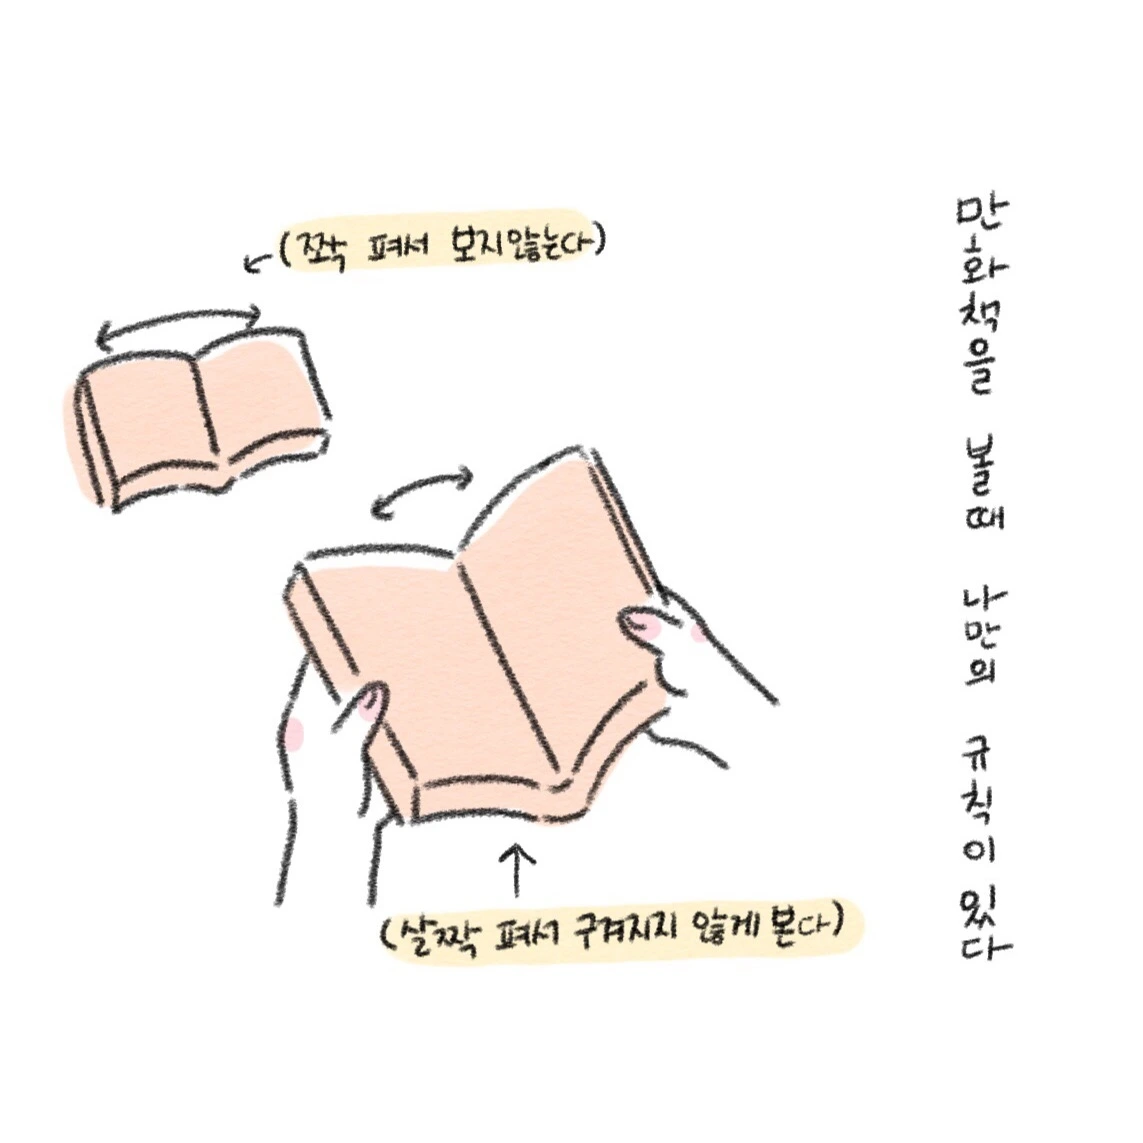 만화책을 볼때 나만의 규칙이 있다
(쫘악 펴서 보지않는다)
(살짝 펴서 구겨지지 않게 본다)